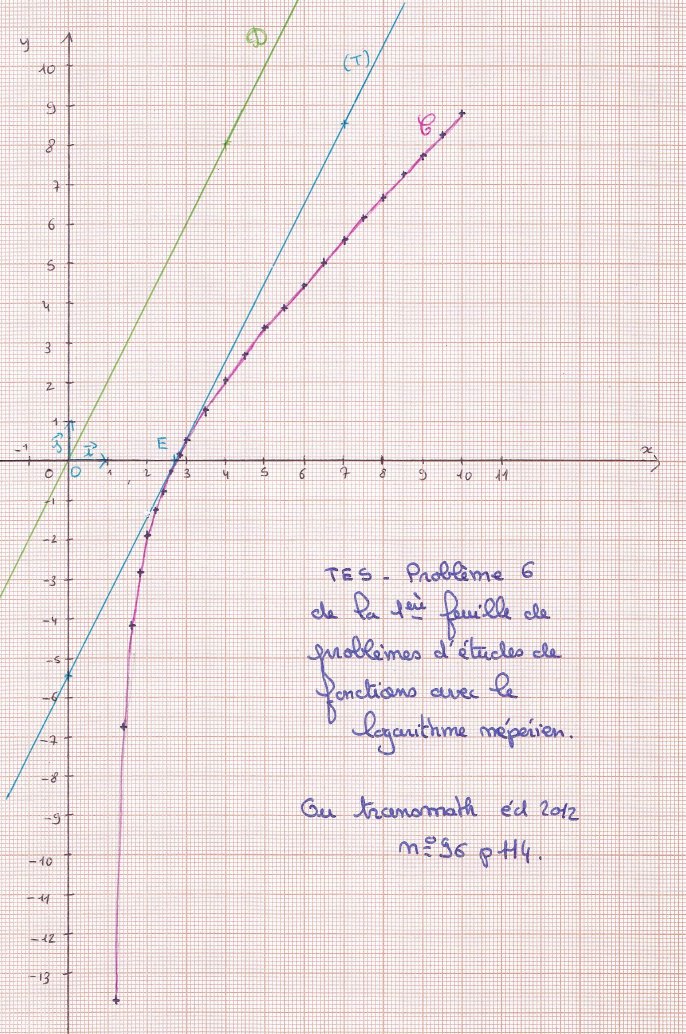 y
D
(T)
C
10
9
8
7
6
5
4
3
2
1
E
j i
x
-1 0 O 1 2 3 4 5 6 7 8 9 10 11
-1
-2
-3
-4
-5
-6
-7
-8
-9
-10
-11
-12
-13
TES - Problème 6
de la 1ère feuille de
problèmes d'études de
fonctions avec le
logarithme népérien.
Ou transmath éd 2012
n° 96 p 114.